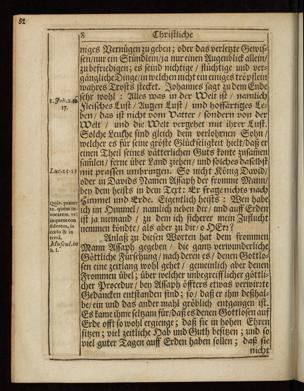 52
8 Christliche
niges Vernügen zu geben; oder das verletzte Gewis-
sen/nur ein Stündlein/ja nur einen Augenblick allein/
zu befriedigen; es seind nichtige / flüchtige und ver-
gängliche Dinge/in welchen nicht ein einiges tröpflein
wahres Trosts steckt. Johannes sagt zu dem Ende
1. Joh. 2. 16
17.
sehr wohl: Alles was in der Welt ist / nämlich
Fleisches Lust / Augen Lust / und hoffärtiges Le-
ben / das ist nicht vom Vatter / sondern von der
Welt / und die Welt vergehet mit ihrer Lust.
Solche Leuthe sind gleich dem verlohrnen Sohn /
welcher es für seine gröste Glückseligkeit hielt/daß er
einen Theil seines vätterlichen Guts konte zusamen
samlen / ferne über Land ziehen / und solches daselbst
Luc. 15. 13
mit prassen umbringen. So nicht König David/
oder in Davids Namen Assaph der fromme Mann/
bey dem heists in dem Text: Er frage nichts nach
Himmel und Erde. Eigentlich heists: Wen habe
ich im Himmel / nämlich neben dir / und auff Erden
ist ja niemand / zu dem ich sicherer mein Zuflucht
nemmen könte / als aber zu dir / o HErr?
Anlaß zu diesen Worten hat dem frommen
Mann Assaph gegeben / die ganz verwunderliche
Göttliche Fürsehung / nach deren es / denen Gottlo-
sen eine zeitlang wohl gehet / gemeinlich aber denen
Frommen übel; über welcher unbegreifflicher göttli-
cher Procedur / bey Assaph öffters etwas verwirrte
Gedancken entstanden sind; so / daß er ihm deßhal-
be/ein und das ander mahl gröblich entgangen ist.
Es kame ihme seltzam für/daß es denen Gottlosen auf
Erde offt so wohl ergienge; daß sie in hohen Ehren
sitzen; viel zeitliche Hab und Guth besitzen; und so
viel guter Tagen auff Erden haben sollen; daß sie
nicht